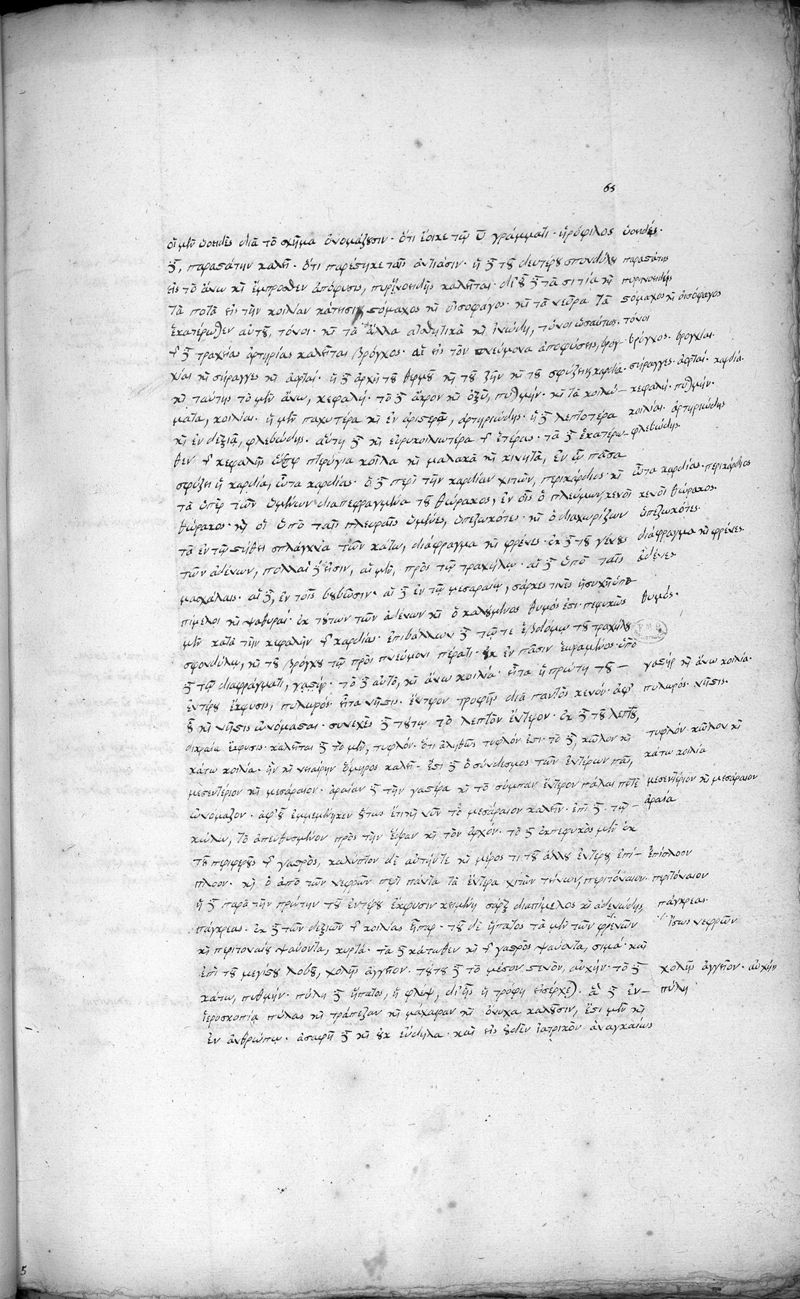 65
οἱ μὲν ὑοειδὲς διὰ τὸ σχῆμα ὀνομάζουσιν· ὅτι ἔοικε τῷ υ γράμματι· ἡρόφιλος ὑοειδές·
δὲ, παραστάτην καλεῖ· ὅτι παρέστηκε ταῖς ἀντιάσιν· ἡ δὲ τοῦ δευτέρου σπονδύλου παραστάτης
εἰς τὸ ἄνω καὶ ἔμπροσθεν ἀπόφυσις, πυρηνοειδὴς καλεῖται· δι' οὗ δὲ τὰ σιτία καὶ πυρηνοειδὴς
τὰ ποτὰ εἰς τὴν κοιλίαν κάτεισι, στόμαχος καὶ οἰσοφάγος· καὶ τὰ νεῦρα τὰ στόμαχος καὶ οἰσόφαγος
ἑκατέρωθεν αὐτοῦ, τόνοι· καὶ τὰ ἄλλα αἰσθητικὰ καὶ ἰνώδη, τόνοι ὡσαύτως· τόνοι
τῆς δὲ τραχείας ἀρτηρίας καλεῖται βρόγχος· αἱ εἰς τὸν πνεύμονα ἀποφύσεις, βρόγ- βρόγχος· βρογχίαι
χίαι καὶ σύραγγες καὶ ἀορταί· ἡ δὲ ἀρχὴ τοῦ θερμοῦ καὶ τοῦ ζῆν καὶ τοῦ σφύζειν, καρδία· σύραγγες· ἀορταί· καρδία·
καὶ ταύτης τὸ μὲν ἄνω, κεφαλή· τὸ δὲ ἄκρον καὶ ὀξὺ, πυθμήν· καὶ τὰ κοιλώ- κεφαλή· πυθμήν·
ματα, κοιλίαι· ἡ μὲν παχυτέρα καὶ ἐν ἀριστερᾷ, ἀρτηριώδης· ἡ δὲ λεπτοτέρα κοιλίαι· ἀρτηριώδης
καὶ ἐν δεξιᾷ, φλεβώδης· αὕτη δὲ καὶ εὐρυκοιλιωτέρα τῆς ἑτέρας· τὰ δὲ ἑκατέρω- φλεβώδης
θεν τῆς κεφαλῆς ὥσπερ πτερύγια κοῖλα καὶ μαλακὰ καὶ κινητὰ, ἐν ᾧ πᾶσα
σφύζει ἡ καρδία, ὦτα καρδίας· ὁ δὲ περὶ τὴν καρδίαν χιτὼν, περικάρδιος· καὶ ὦτα καρδίας· περικάρδιος
τὰ ὑπὲρ τῶν ὑμένων διαπεφραγμένα τοῦ θώρακος, ἐν οἷς ὁ πλεύμων, κενοὶ κενοὶ θώρακος
θώρακος· καὶ οἱ ὑπὸ ταῖς πλευραῖς ὑμένες, ὑπεζωκότες· καὶ ὁ διαχωρίζων ὑπεζωκότες·
τὰ ἐν τῷ στήθει σπλάγχνα τῶν κάτω, διάφραγμα καὶ φρένες· ἐκ δὲ τοῦ γένους διάφραγμα καὶ φρένες
τῶν ἀδένων, πολλαὶ δ' εἰσιν, αἱ μὲν, πρὸς τῷ τραχήλῳ· αἱ δὲ ὑπὸ ταῖς ἀδένες
μασχάλαις· αἱ δὲ, ἐν τοῖς βουβῶσιν· αἱ δὲ ἐν τῷ μεσαραίῳ, σάρκες τινὲς ἡσυχῆ ὑπο-
πίμελοι καὶ ψαθυραί· ἐκ τούτων τῶν ἀδένων καὶ ὁ καλούμενος θυμός ἐστι πεφυκὼς θυμός·
μὲν κατὰ τὴν κεφαλὴν τῆς καρδίας· ἐπιβάλλων δὲ τῷ τε ἑβδόμῳ τοῦ τραχήλου
σφονδύλῳ, καὶ τοῦ βρόγχου τῷ πρὸς πνεύμονι πέρατι· οὐκ ἐν πᾶσιν εὑραμένος· ὑπὸ
δὲ τῷ διαφράγματι, γαστήρ· τὸ δὲ αὐτὸ, καὶ ἄνω κοιλία· εἶτα ἡ πρώτη τοῦ γαστήρ καὶ ἄνω κοιλία·
ἐντέρου ἔκφυσις, πυλωρός· εἶτα νῆστις· ἔντερον τροφῆς διὰ παντὸς κενόν· ἀφ' πυλωρός· νῆστις·
οὗ καὶ νῆστις ὠνόμασται· συνεχὲς δὲ τούτῳ τὸ λεπτὸν ἔντερον· ἐκ δὲ τοῦ λεπτοῦ,
διχραία ἔκφυσις· καλεῖται δὲ τὸ μὲν, τυφλόν· ὅτι ἀληθῶς τυφλόν ἐστι· τὸ δὲ, κῶλον καὶ τυφλόν κῶλον καὶ
κάτω κοιλία· ἣν καὶ νειαίρην ὅμηρος καλεῖ· ἔστι δὲ ὁ σύνδεσμος τῶν ἐντέρων πᾶς, κάτω κοιλία
μεσεντέριον καὶ μεσάραιον· ἀραίαν δὲ τὴν γαστέρα καὶ τὸ σύμπαν ἔντερον πάλαι ποτὲ μεσεντέριον καὶ μεσάραιον
ὠνόμαζον· ἀφ' οὗ ἐμμεμένηκεν οὕτως ἔτι καὶ νῦν τὸ μεσάραιον καλεῖν· ἐπὶ δὲ τῷ ἀραία
κώλῳ, τὸ ἀπευθυσμένον πρὸς τὴν ἕδραν καὶ τὸν ἀρχόν· τὸ δὲ ἐκπεφυκὸς μὲν ἐκ
τοῦ περιφεροῦς τῆς γαστρὸς, καλύπτον δὲ αὐτήν τε καὶ μέρος τι τοῦ ἄλλου ἐντέρου ἐπί- ἐπίπλοον
πλοον· καὶ ὁ ἀπὸ τῶν νεφρῶν περὶ πάντα τὰ ἔντερα χιτὼν τείνων, περιτόναιον· περιτόναιον
ἡ δὲ παρὰ τὴν πρώτην τοῦ ἐντέρου ἔκφυσιν κειμένη σὰρξ διαπίμελος καὶ ἀδενώδης, πάγκρεας·
πάγκρεας· ἐκ δὲ τῶν δεξιῶν τῆς κοιλίας ἧπαρ· τοῦ δὲ ἥπατος τὰ μὲν τῶν φρενῶν ἴσως νεφρῶν
καὶ περιτοναίου ψαύοντα, κυρτά· τὰ δὲ κάτωθεν καὶ τῆς γαστρὸς ψαύοντα, σιμά· καὶ
ἐπὶ τοῦ μεγίστου λοβοῦ, χολῆς ἀγγεῖον· τούτου δὲ τὸ μέσον στενὸν, αὐχήν· τὸ δὲ χολῆς ἀγγεῖον· αὐχήν
κάτω, πυθμήν· πύλη δὲ ἥπατος, ἡ φλὲψ, δι' ἧς ἡ τροφὴ εἰσέρχεται· ἃ δὲ ἐν πύλη
ἱεροσκοπίᾳ πύλας καὶ τράπεζαν καὶ μάχαιραν καὶ ὄνυχα καλοῦσιν, ἔστι μὲν καὶ
ἐν ἀνθρώπῳ· ἀσαφῆ δὲ καὶ οὐκ εὔδηλα· καὶ εἰς οὐδὲν ἰατρικὸν ἀναγκαίως